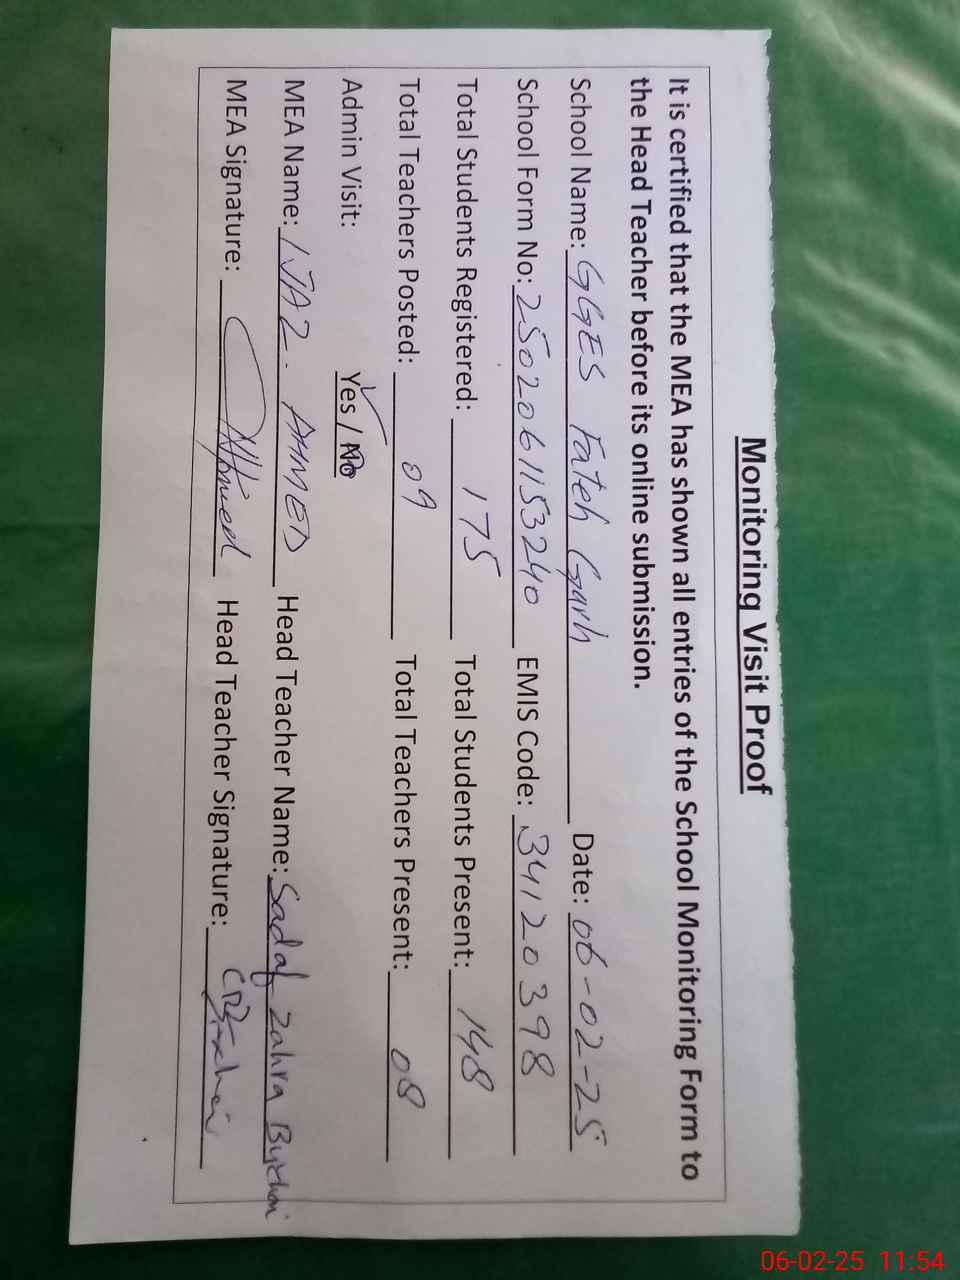 Monitoring Visit Proof
It is certified that the MEA has shown all entries of the School Monitoring Form to
the Head Teacher before its online submission.
School Name: GGES Fateh Garh Date: 06-02-25
School Form No: 2502061153240 EMIS Code: 34120398
Total Students Registered: 175 Total Students Present: 148
Total Teachers Posted: 09 Total Teachers Present: 08
Admin Visit: Yes / No
MEA Name: IJAZ. AHMED Head Teacher Name: Sadaf Zahra
MEA Signature: Ahmed Head Teacher Signature:
06-02-25 11:54